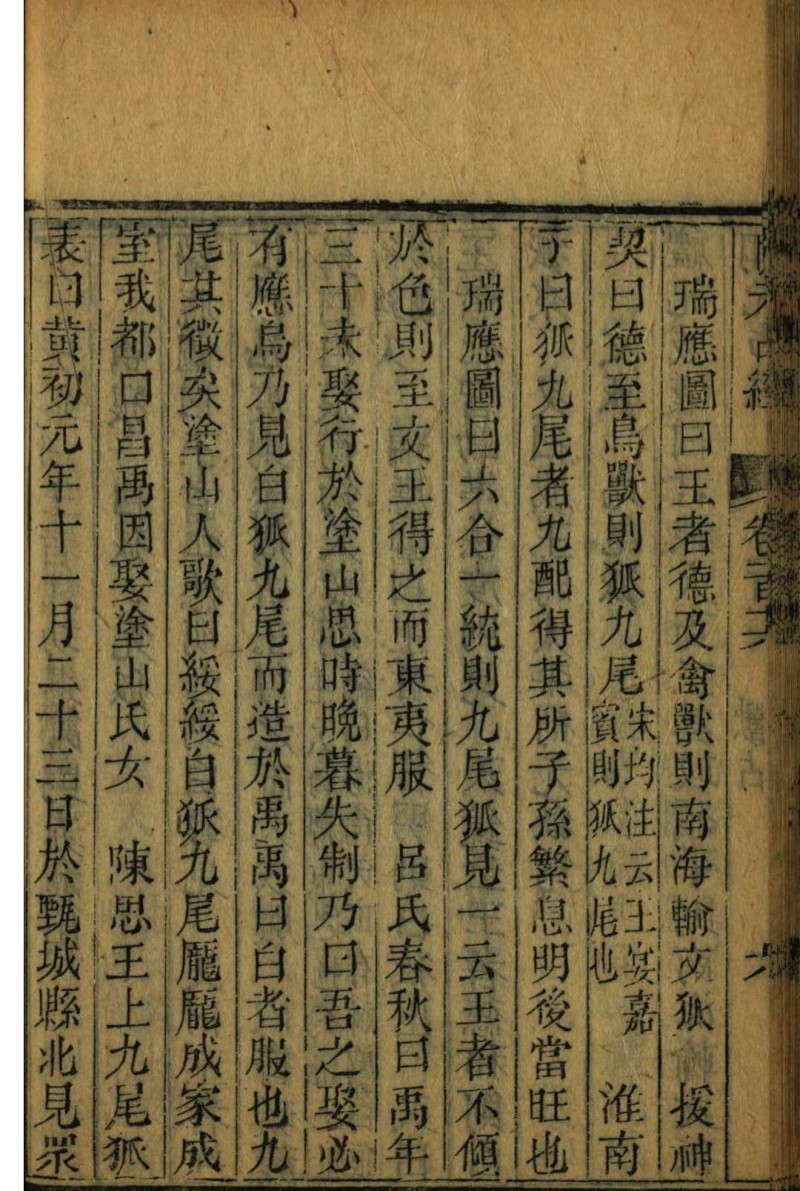 開元占經 卷一百一十六 六
瑞應圖曰王者德及禽獸則南海輸文狐 援神
契曰德至鳥獸則狐九尾宋均注云王宴嘉賓則狐九尾也 淮南
子曰狐九尾者九配得其所子孫繁息明後當旺也
瑞應圖曰六合一統則九尾狐見一云王者不傾
於色則至文王得之而東夷服 呂氏春秋曰禹年
三十未娶行於塗山思時晚暮失制乃曰吾之娶必
有應烏乃見白狐九尾而造於禹禹曰白者服也九
尾其徵矣塗山人歌曰綏綏白狐九尾龐龐成家成
室我都口昌禹因娶塗山氏女 陳思王上九尾狐
表曰黃初元年十一月二十三日於甄城縣北見眾